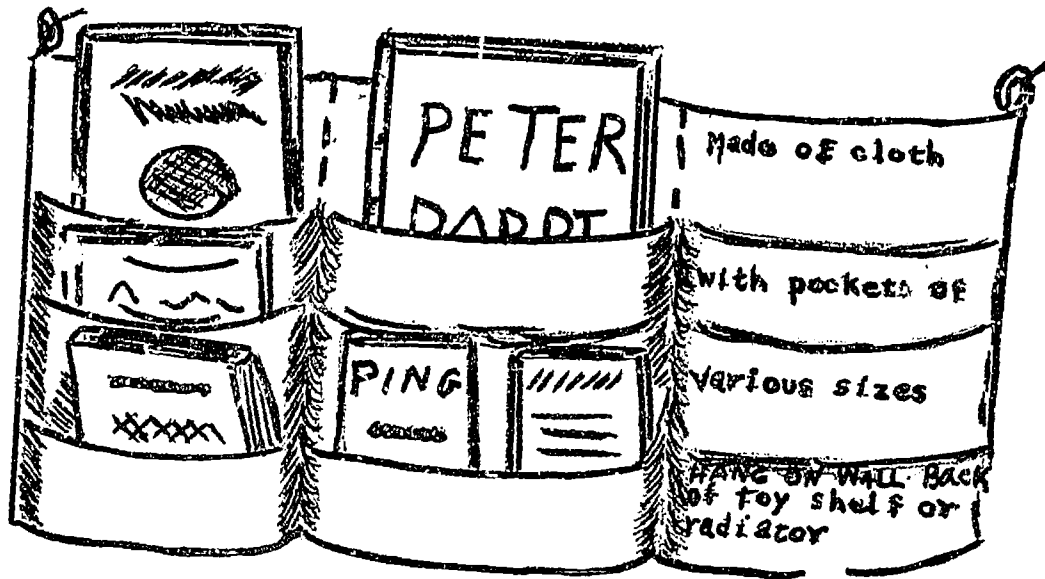 PETER
Made of cloth
with pockets of
PING
various sizes
HANG ON WALL BACK
of toy shelf or
radiator